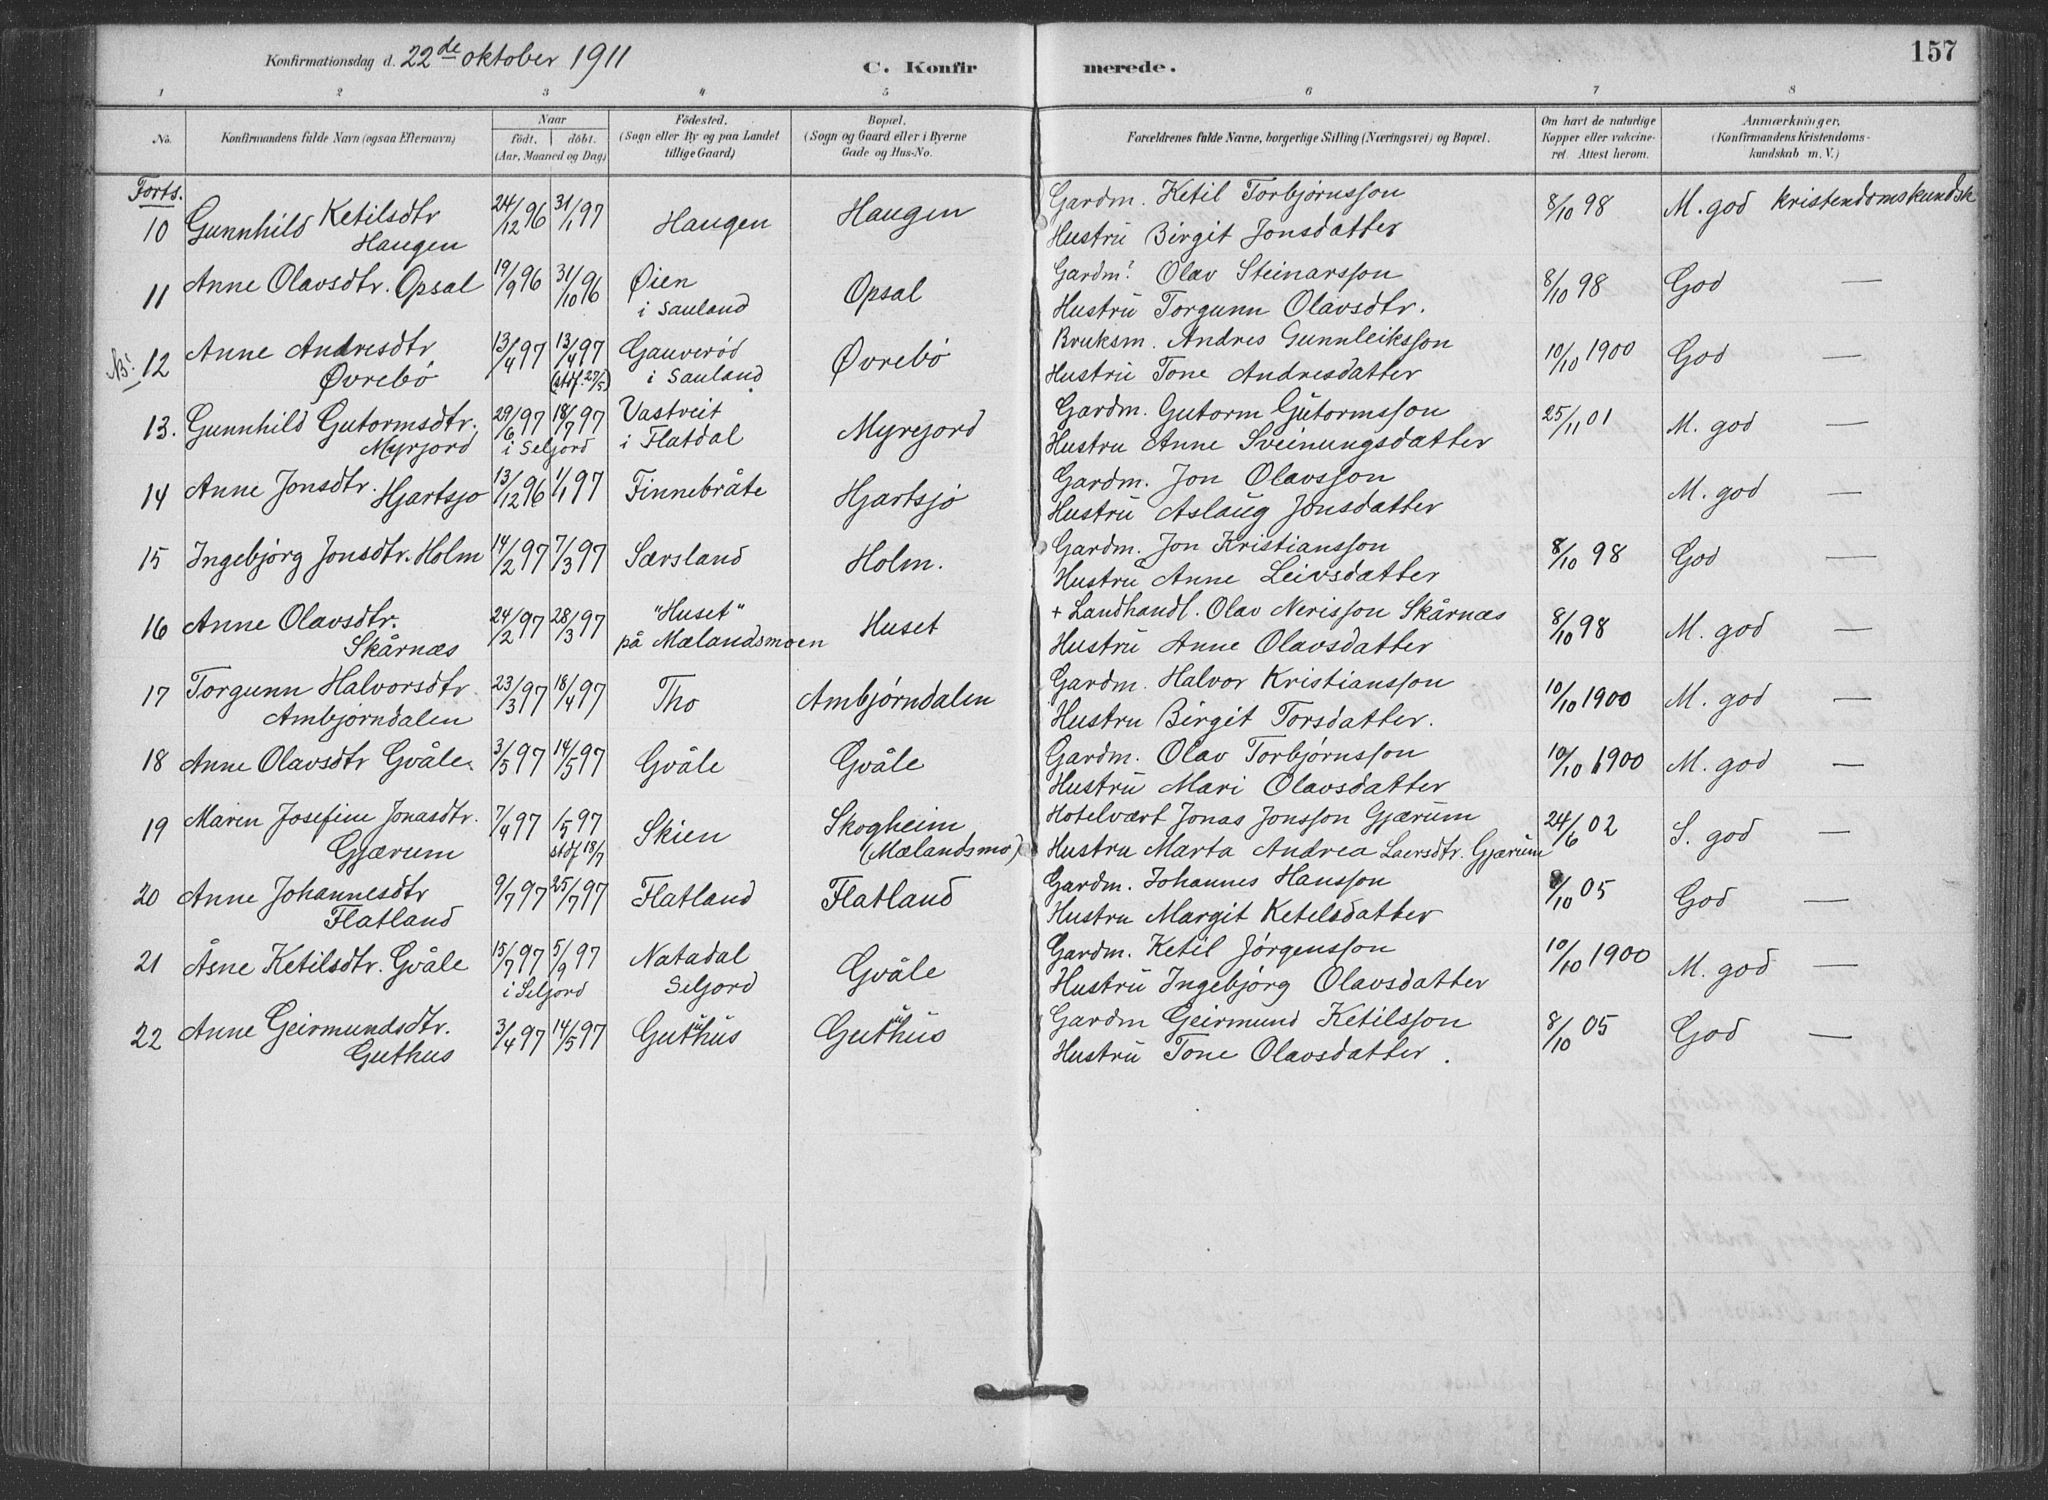 Konfirmationsdag d. 22de oktober 1911
C. Konfirmerede.
157
1 2 3 4 5 6 7 8
No. Konfirmandens fulde Navn (ogsaa Efternavn)
Naar
födt. döbt.
(Aar, Maaned og Dag)
Födested.
(Sogn eller By og paa Landet
tillige Gaard)
Bopæl.
(Sogn og Gaard eller i Byerne
Gade og Hus-No.
Forældrenes fulde Navne, borgerlige Stilling (Næringsvei) og Bopæl.
Om havt de naturlige
Kopper eller vakcine-
ret. Attest herom.
Anmærkninger.
(Konfirmandens Kristendoms-
kundskab m. V.)
Forts.
10 Gunnhild Ketilsdtr 24/12 96 31/1 97 Haugen Haugen Gardm. Ketil Torbjørnsson 8/10 98 M. god kristendomskundsk
Haugen Hustru Birgit Jonsdatter
11 Anne Olavsdtr. Opsal 19/9 96 31/10 96 Øien Opsal Gardm. Olav Steinarsson 8/10 98 God —
i Sauland Hustru Torgunn Olavsdtr.
12 Anne Andresdtr 13/4 97 13/4 97 Gauverød Øvrebø Bruksm. Andres Gunnleiksson 10/10 1900 God —
Øvrebø (stdf. 27/5) i Sauland Hustru Tone Andresdatter
13. Gunnhild Gutormsdtr. 29/6 97 18/7 97 Vastveit Myrejord Gardm. Gutorm Gutormsson 25/11 01 M. god —
Myrjord i Seljord i Flatdal Hustru Anne Sveinungsdatter
14 Anne Jonsdtr. Hjartsjø 13/12 96 1/1 97 Finnebråte Hjartsjø Gardm. Jon Olavsson M. god —
Hustru Aslaug Jonsdatter
15 Ingebjørg Jonsdtr. Holm 14/2 97 7/3 97 Særsland Holm. Gardm. Jon Kristiansson 8/10 98 God —
Hustru Anne Leivsdatter
16 Anne Olavsdtr. 24/2 97 28/3 97 "Huset" Huset + Landhandl. Olav Nerisson Skårnæs 8/10 98 M. god —
Skårnæs på Mælandsmoen Hustru Anne Olavsdatter
17 Torgunn Halvorsdtr. 23/3 97 18/4 97 Tho Ambjørndalen Gardm. Halvor Kristiansson 10/10 1900 M. god —
Ambjørndalen Hustru Birgit Torsdatter.
18 Anne Olavsdtr Gvåle. 3/5 97 14/5 97 Gvåle Gvåle Gardm. Olav Torbjørnsson 10/10 1900 M. god —
Hustru Mari Olavsdatter
19 Maren Josefine Jonasdtr. 7/4 97 1/5 97 Skien Skogheim Hotelvært Jonas Jonsson Gjærum 24/6 02 S. god —
Gjærum stdf 18/7 (Mælandsmo) Hustru Marta Andrea Laersdtr. Gjærum
20 Anne Johannesdtr 9/7 97 25/7 97 Flatland Flatland Gardm. Johannes Hansson 8/10 05 God —
Flatland Hustru Margit Ketelsdatter
21 Åsne Ketilsdtr. Gvåle 15/7 97 5/9 97 Natadal Gvåle Gardm. Ketil Jørgensson 10/10 1900 M. god —
i Seljord Seljord Hustru Ingebjørg Olavsdatter
22 Anne Geirmundsdtr. 3/4 97 14/5 97 Guthus Guthus Gardm Geirmund Ketilsson 8/10 05 God —
Guthus Hustru Tone Olavsdatter.